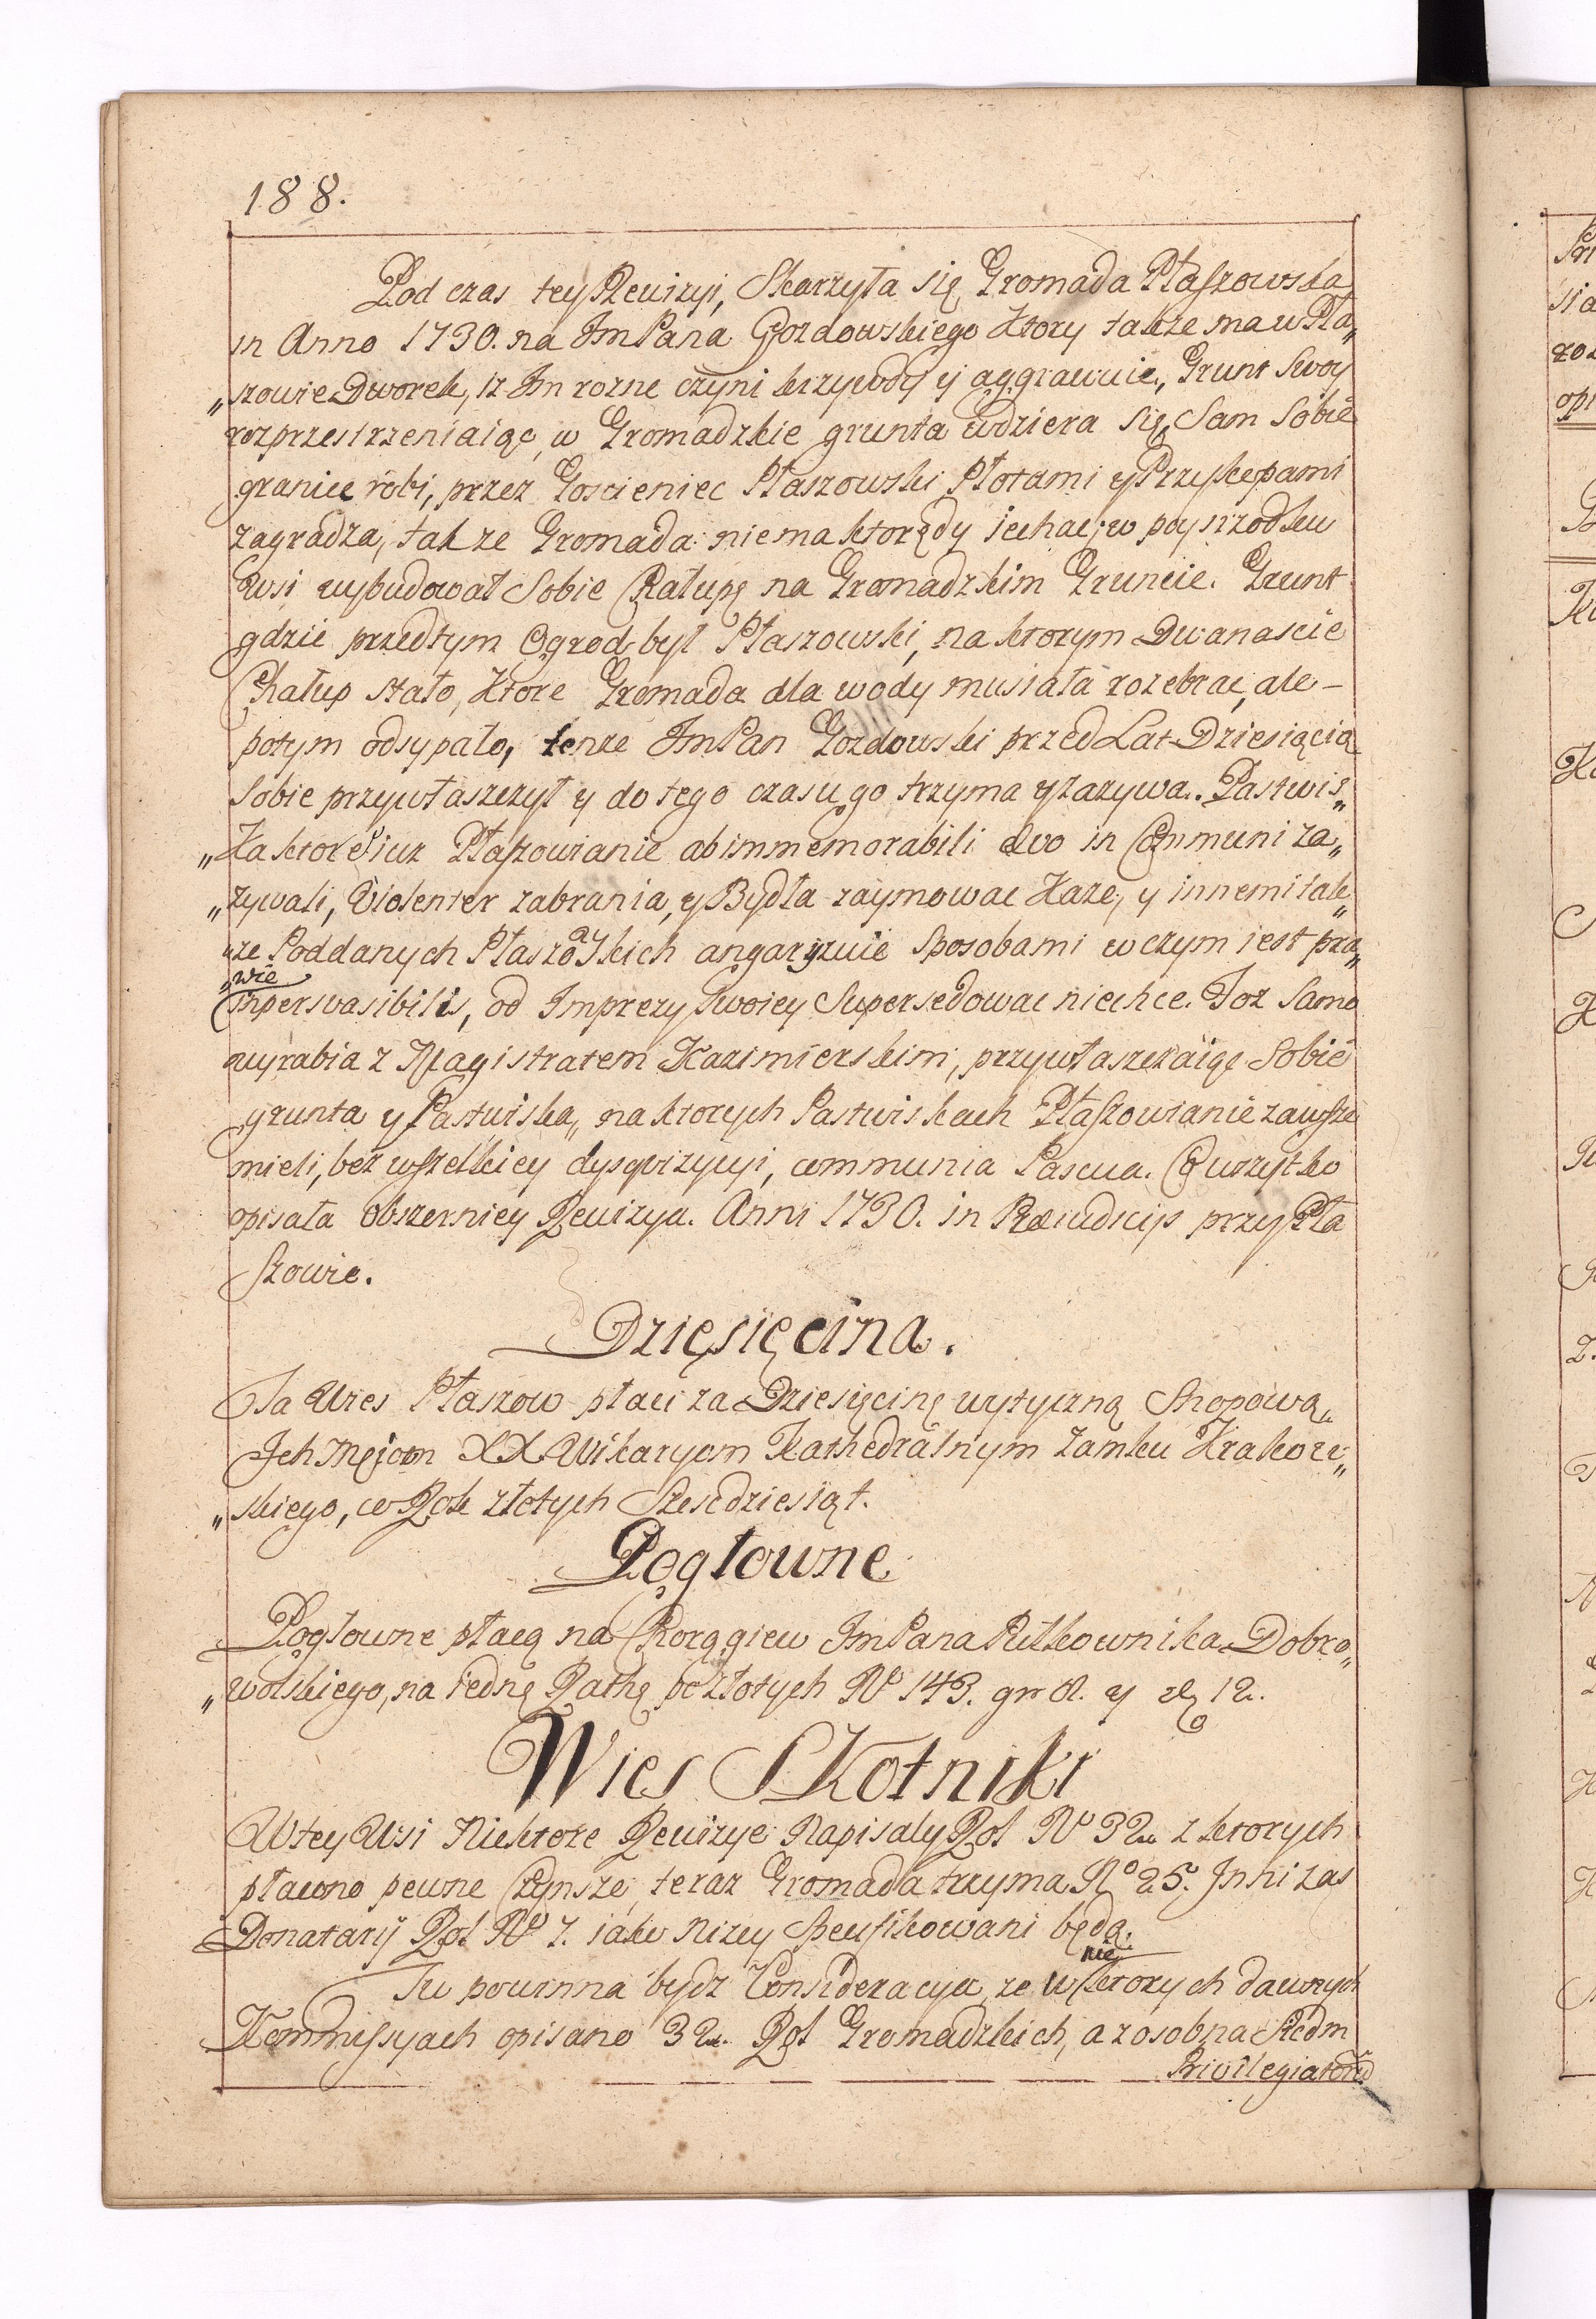 188.
Pod czas tey Rewizyi, Skarzyła się Gromada Płaszowska
in Anno 1730. na ImPana Gozdowskiego Ktory takze ma w Pła„
„szowie Dworek, iz Im rozne czyni krzywdy y aggrawuie, Grunt Swoy
rozprzestrzeniaiąc, w Gromadzkie grunta wdziera się, Sam Sobie
granice robi, przez Gosciniec Płaszowski Płotami y Przykopami
zagradza, tak ze Gromada niema ktorędy iechac, w posrzodku
Wsi wybudował Sobie Chałupę na Gromadzkim Gruncie. Grunt
gdzie przedtym Ogrod był Płaszowski, na ktorym Dwanascie
Chałup stało, Ktore Gromada dla wody musiała rozebrac, ale –
potym odsypało, tenze ImPan Gozdowski przed Lat Dziesiącią
Sobie przywłaszczył y do tego czasu go trzyma y zazywa. Pastwis„
„Ka ktore iuz Płaszowianie ab immemorabili ævo in Communi za„
„zywali, Violenter zabrania, y Bydła zaymowac Kaze, y innemi tak„
„ze Poddanych Płaszowskich angaryzuie Sposobami w czym iest pra„
„wie
inpersvasibilis, od Imprezy Swoiey Supersedowac niechce. Toz Samo
wyrabia z Magistratem Kazimierskim, przywłaszczaiąc Sobie
grunta y Pastwiska, na ktorych Pastwiskach Płaszowianie zawsze
mieli, bez wszelkiey dysqvizycyi, communia Pascua. Co wszytko
opisała obszerniey Rewizya. Anni 1730. in Præiudicijs przy Pła
szowie.
Dzięsięcina.
Ta Wies Płaszow płaci za Dziesięcinę wytyczną Snopową„
Ich Męjom XX Wikaryom Kathedralnym Zamku Krakow„
„skiego, co Rok złotych Szescdziesiąt.
Pogłowne
Pogłowne płacą na Chorągiew ImPana Pułkownika Dobro„
„wolskiego, na iedną Rathę po złotych No 143. gr 8. y 12.
Wies SKotniki
W tey Wsi Niektore Rewizye Napisały Rol No 32. z ktorych
płacono pewne Czynsze, teraz Gromada trzyma No 25. Inni zas
Donatarij Rol No 7. iako nizey Specifikowani będą.
Tu powinna bydz Consideracya, ze w nie ktorych dawnych
Kommissyach opisano 32. Rol Gromadzkich, a zosobna Siedm
Privilegiatorū